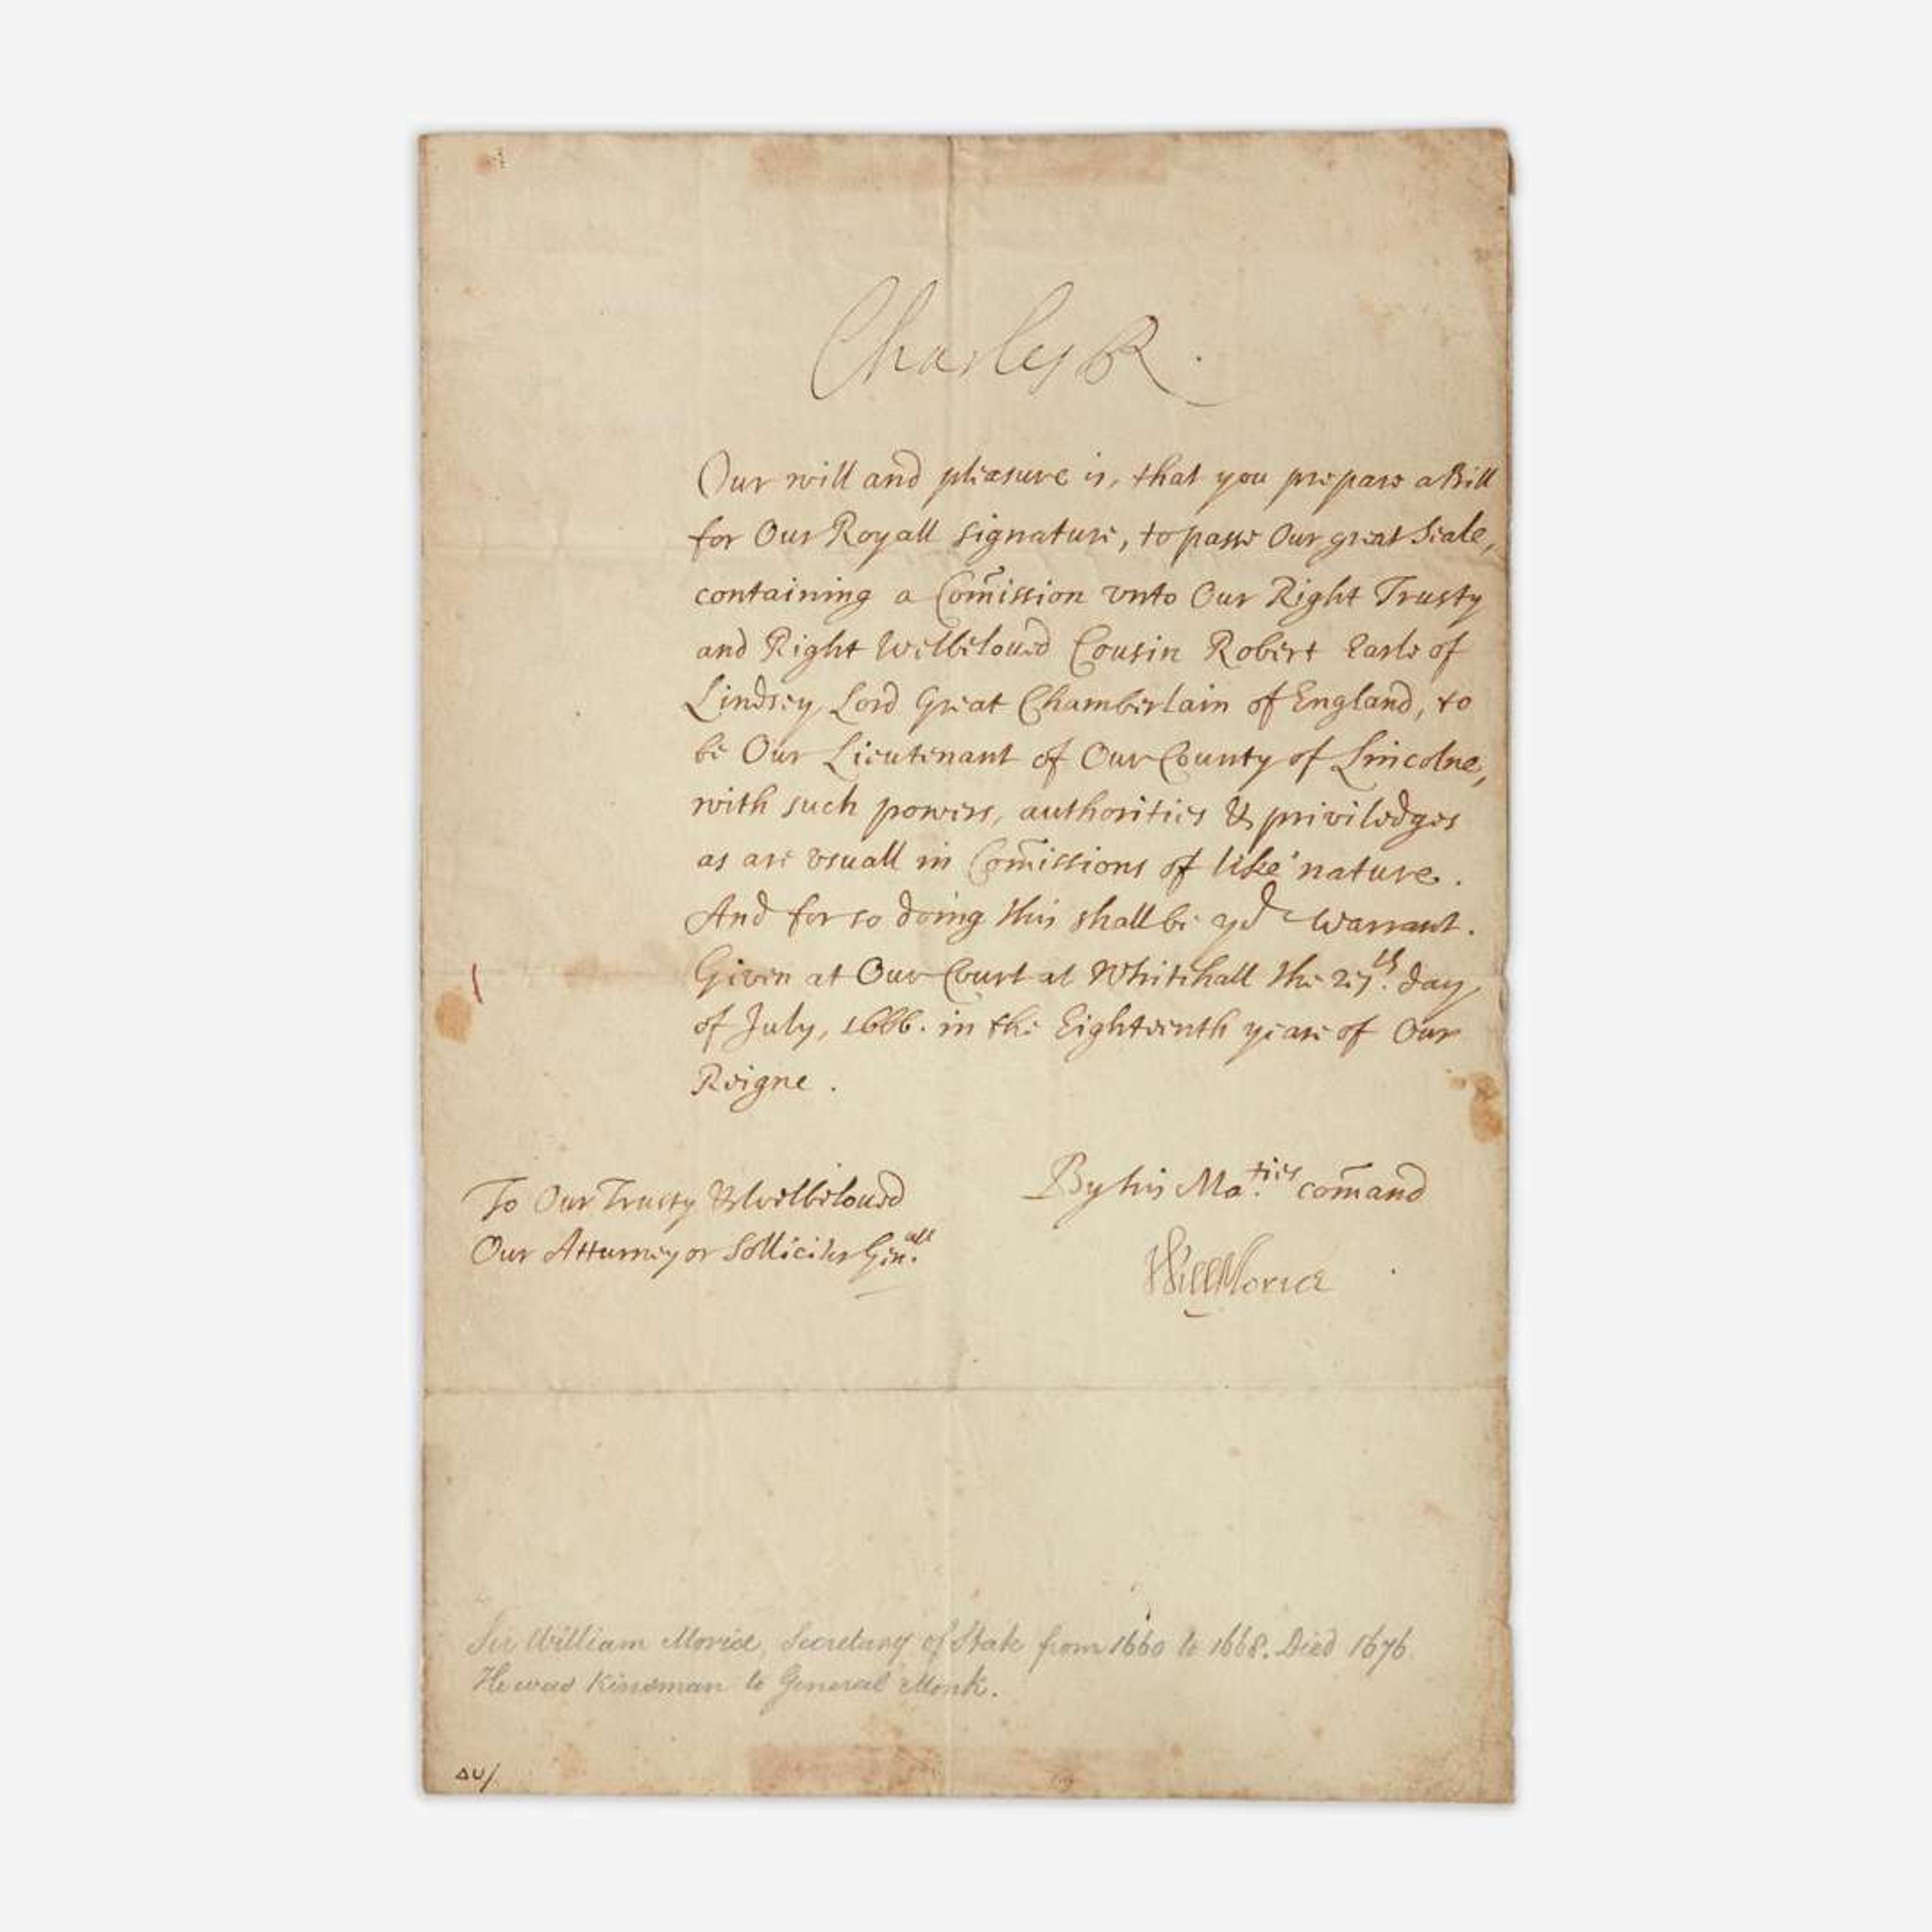 Charles R.
Our will and pleasure is, that you prepare a Bill
for Our Royall signature, to passe Our great Seale,
containing a Com̃ission vnto Our Right Trusty
and Right Welbeloued Cousin Robert Earle of
Lindsey Lord Great Chamberlain of England, to
be Our Lieutenant of Our County of Lincolne,
with such powers, authorities & priviledges
as are vsuall in Com̃issions of like nature.
And for so doing this shall be yor Warrant.
Given at Our Court at Whitehall the 27th. day
of July, 1666. in the Eighteenth yeare of Our
Reigne.
By his Ma.ties com̃and
To Our Trusty & Welbeloued
Our Atturney or Solliciter Gen.all
Will Morice
Sir William Morice, Secretary of State from 1660 to 1668. Died 1676
He was Kinsman to General Monk.